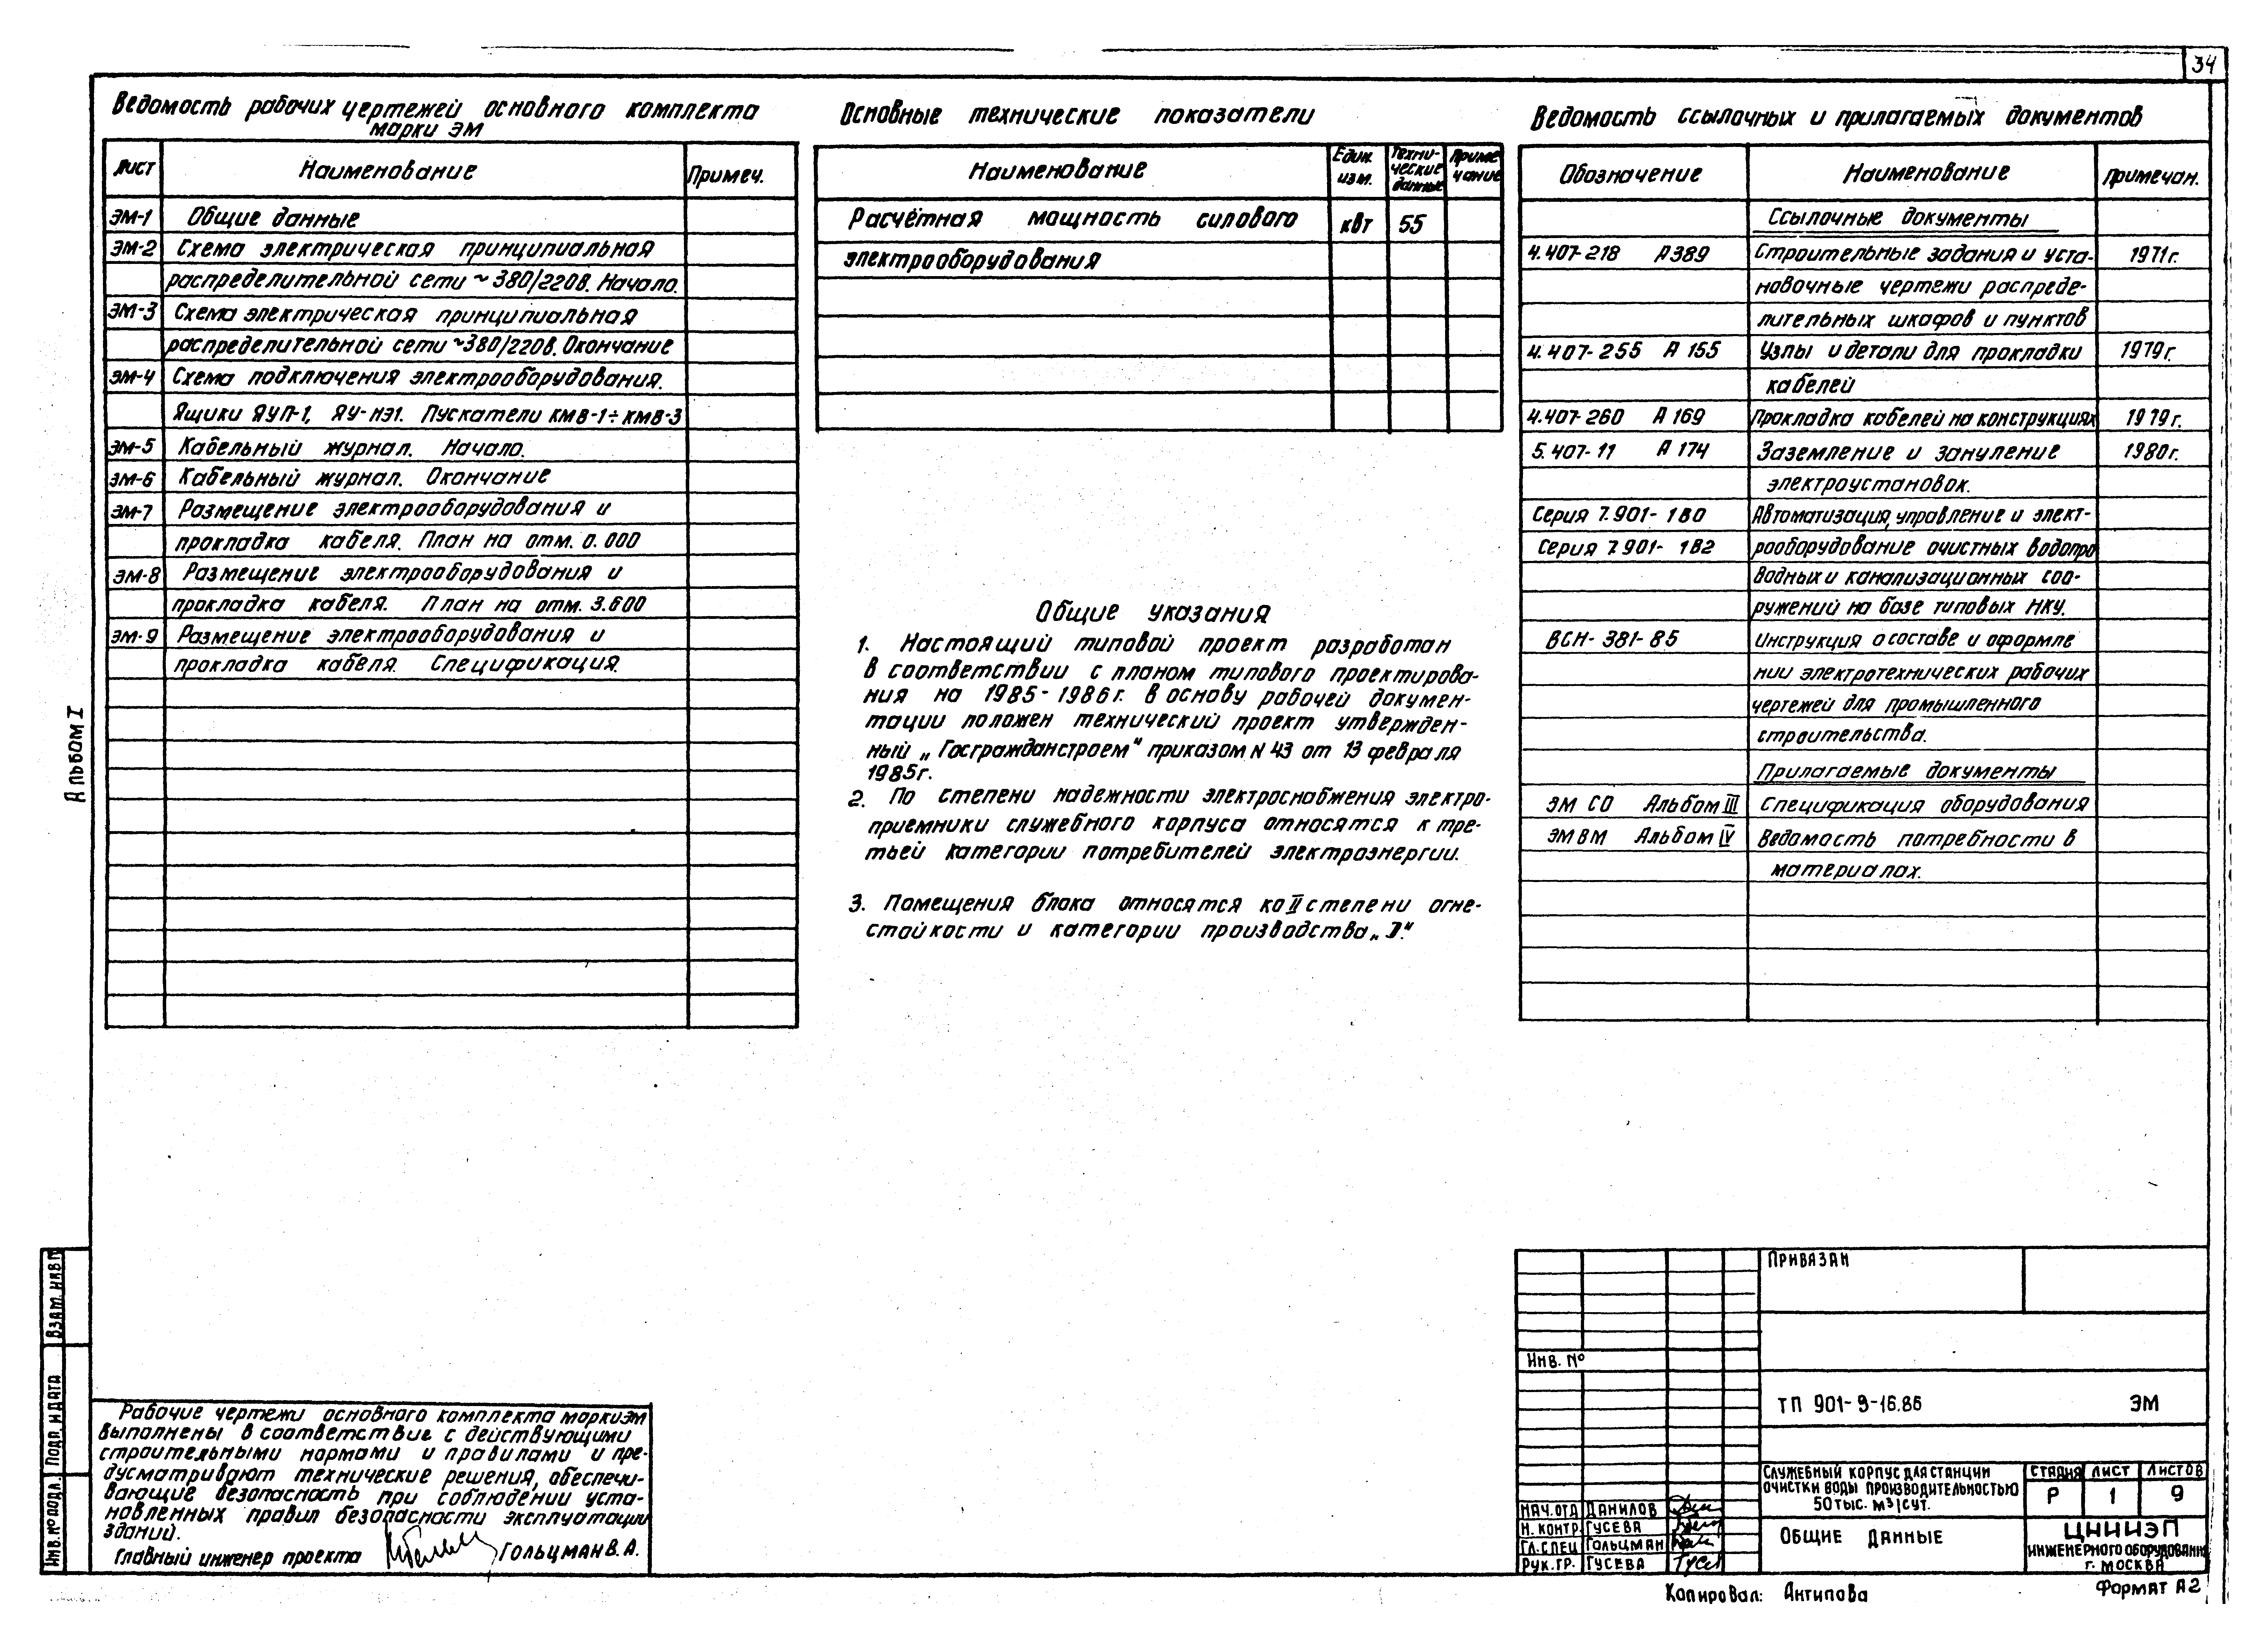 34
Ведомость рабочих чертежей основного комплекта
марки ЭМ
Лист Наименование Примеч.
ЭМ-1 Общие данные
ЭМ-2 Схема электрическая принципиальная
распределительной сети ~380/220В. Начало.
ЭМ-3 Схема электрическая принципиальная
распределительной сети ~380/220В. Окончание
ЭМ-4 Схема подключения электрооборудования.
Ящики ЯУП-1, ЯУ-НЭ1. Пускатели КМВ-1÷КМВ-3
ЭМ-5 Кабельный журнал. Начало.
ЭМ-6 Кабельный журнал. Окончание
ЭМ-7 Размещение электрооборудования и
прокладка кабеля. План на отм. 0.000
ЭМ-8 Размещение электрооборудования и
прокладка кабеля. План на отм. 3.600
ЭМ-9 Размещение электрооборудования и
прокладка кабеля. Спецификация.
Основные технические показатели
Наименование Един. изм. Техни-ческие данные Приме чание
Расчётная мощность силового квт 55
электрооборудования
Общие указания
1. Настоящий типовой проект разработан
в соответствии с планом типового проектирова-
ния на 1985-1986г. В основу рабочей докумен-
тации положен технический проект утвержден-
ный „Госгражданстроем" приказом N 43 от 13 февраля
1985г.
2. По степени надежности электроснабжения электро-
приемники служебного корпуса относятся к тре-
тьей категории потребителей электроэнергии.
3. Помещения блока относятся ко II степени огне-
стойкости и категории производства „Д."
Ведомость ссылочных и прилагаемых документов
Обозначение Наименование Примечан.
Ссылочные документы
4.407-218 А389 Строительные задания и уста- 1971г.
новочные чертежи распреде-
лительных шкафов и пунктов
4.407-255 А 155 Узлы и детали для прокладки 1979г.
кабелей
4.407-260 А 169 Прокладка кабелей на конструкциях 1979г.
5.407-11 А 174 Заземление и зануление 1980г.
электроустановок.
Серия 7.901-1 В0 Автоматизация, управление и элект-
Серия 7.901-1В2 рооборудование очистных водопро
водных и канализационных соо-
ружений на базе типовых НКУ.
ВСН-381-85 Инструкция о составе и оформле
нии электротехнических рабочих
чертежей для промышленного
строительства.
Прилагаемые документы
ЭМ СО Альбом III Спецификация оборудования
ЭМ ВМ Альбом IV Ведомость потребности в
материалах.
Альбом I
Взам. инв №
Подп. и дата
Инв. № подл.
Рабочие чертежи основного комплекта марки ЭМ
выполнены в соответствие с действующими
строительными нормами и правилами и пре-
дусматривают технические решения, обеспечи-
вающие безопасность при соблюдении уста-
новленных правил безопасности эксплуатации
зданий.
Главный инженер проекта Гольцман В.А.
Привязан
Инв. №
ТП 901-9-16.86 ЭМ
Нач.отд Данилов
Н. контр. Гусева
Гл.спец Гольцман
Рук.гр. Гусева
Служебный корпус для станции
очистки воды производительностью
50 тыс. м³/сут.
Стадия Лист Листов
Р 1 9
Общие данные
ЦНИИЭП
инженерного оборудования
г. Москва
Копировал: Антипова
Формат А2